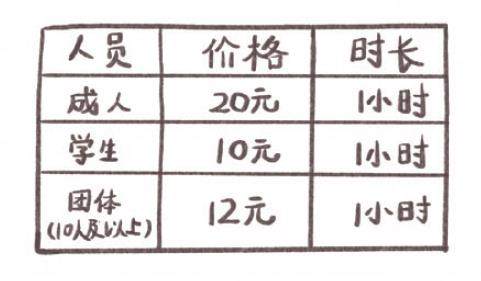 人员 价格 时长
成人 20元 1小时
学生 10元 1小时
团体 12元 1小时
(10人及以上)